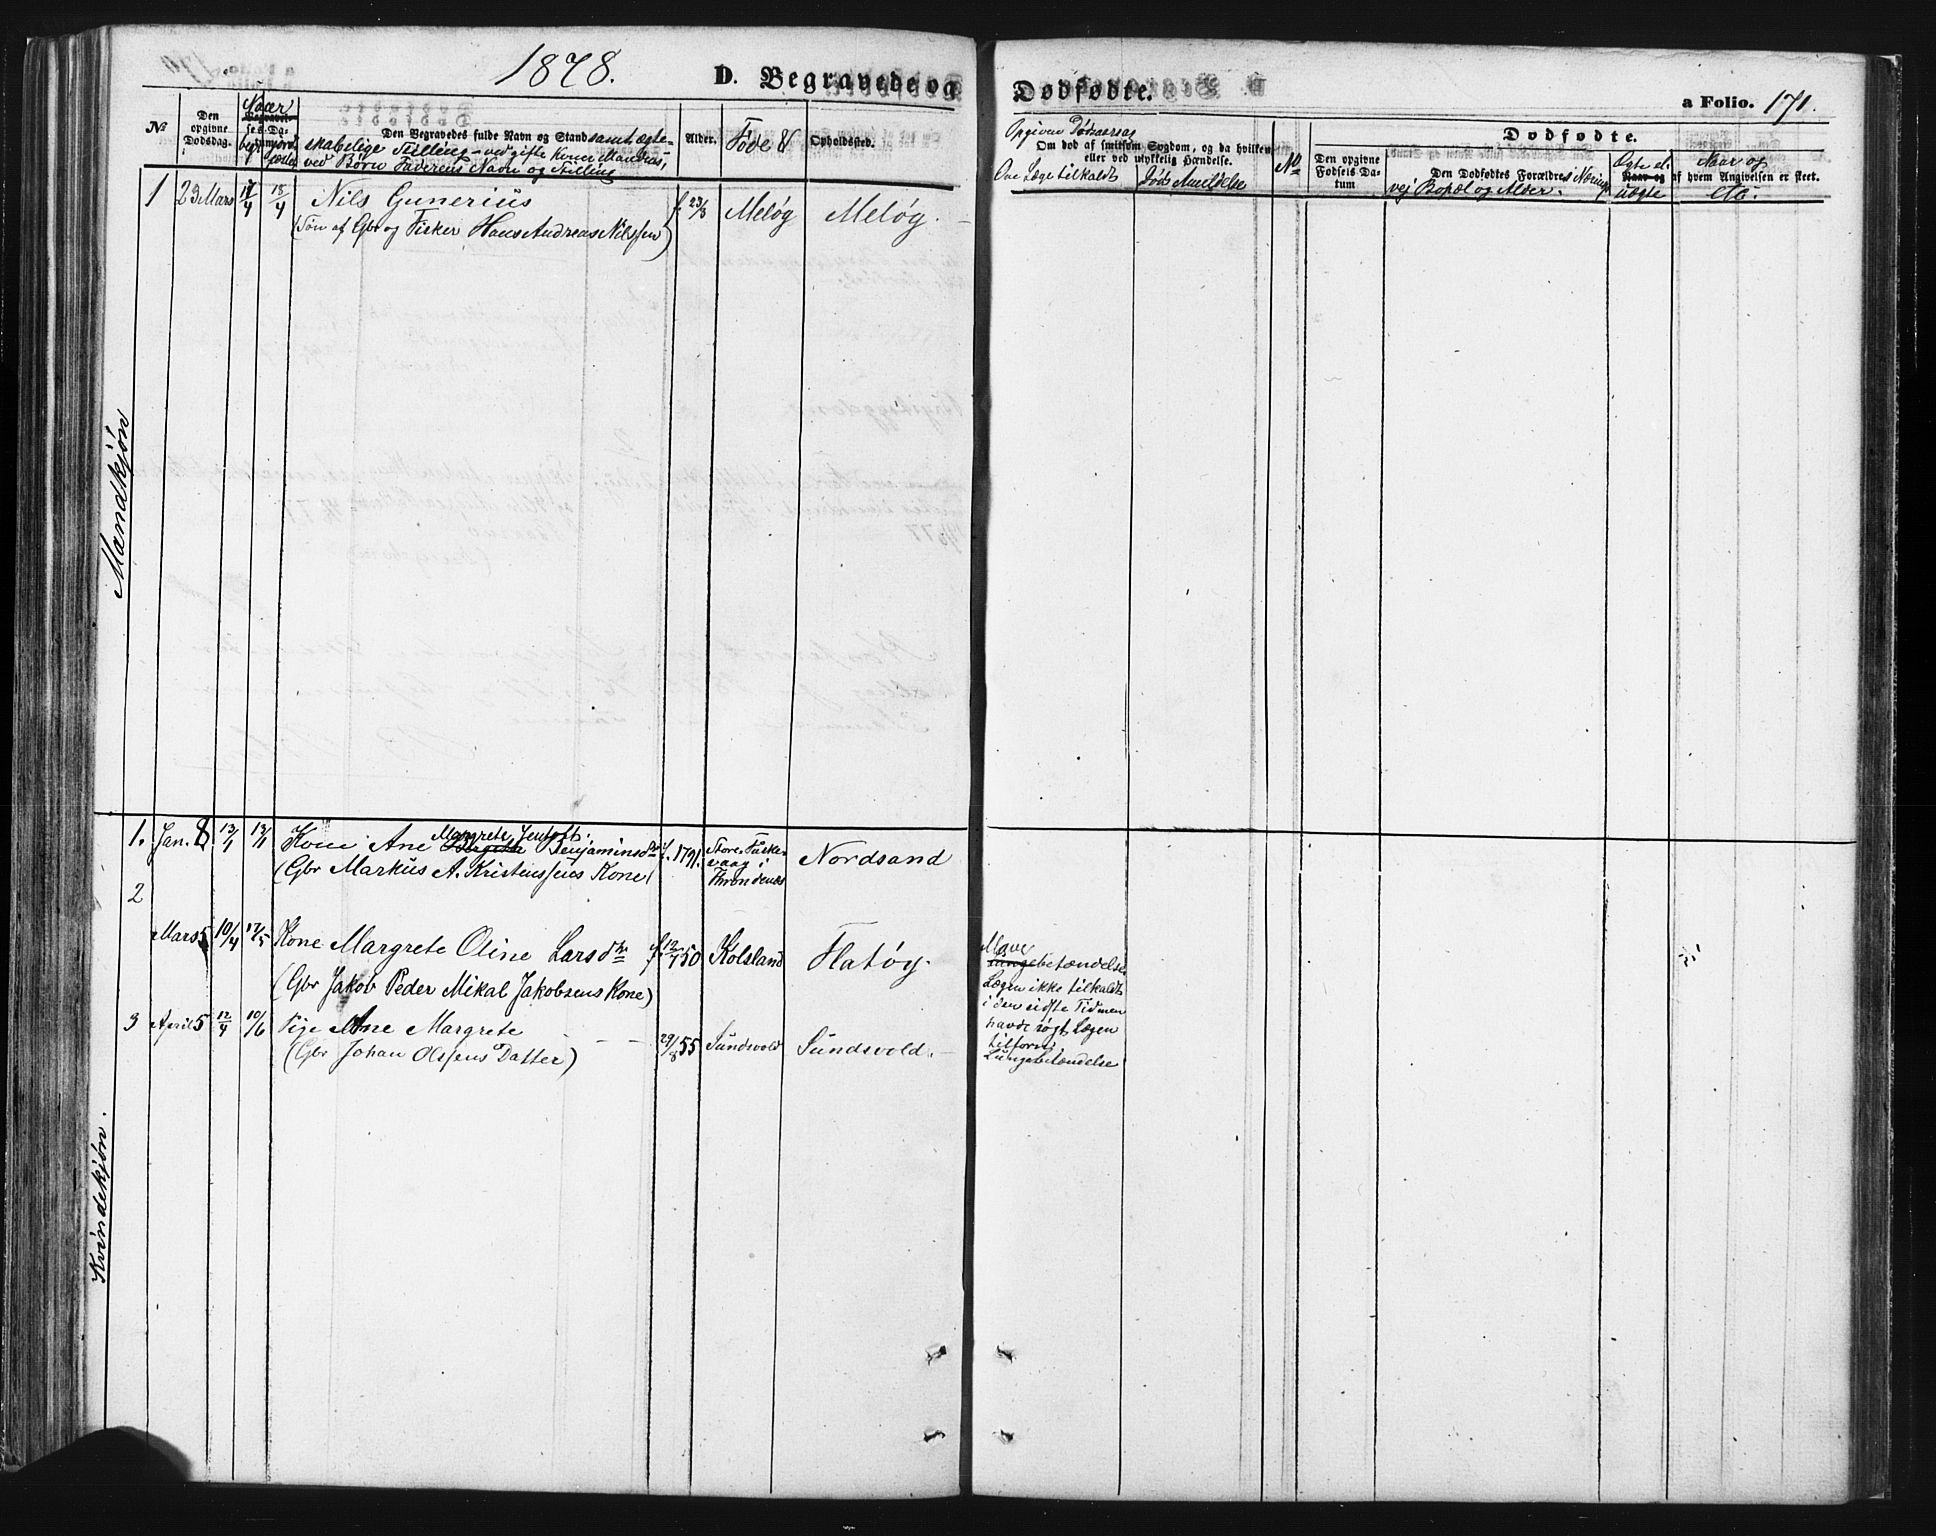 1878.
D. Begravede og
Dødfødte.
a Folio. 171.
No
Den opgivne Dødsdag.
Naar
Begravel-
ses-Da-
Den Begravedes fulde Navn og Stand samt ægte-
skabelige Stilling - ved gifte Koner Mandens,
ved Børn Faderens Navn og Stilling
Alder.
Føde &
Opholdssted.
Opgiven Dødsaarsag
Om død af smitsom Sygdom, og da hvilken,
eller ved ulykkelig Hændelse.
Om Læge tilkaldt
No
Dødfødte.
Den opgivne
Fødsels-Da-
tum
Den Dødfødtes Forældres Nærings-
vej Bopæl og Alder.
Ægte el.
uægte
Naar og
af hvem Angivelsen er skeet.
Mandkjøn
1 23 Mars 14/4 13/4 Nils Gunerius f. 23/3 Meløg Meløg.
(Søn af Gbr og Fisker Hans Andreas Nilssen)
Kvindekjøn.
Margrete Jentoft.
1. Jan. 8 13/1 13/1 Kone Ane Birgitte Benjaminsdtr f. 1791. Store Fiske- Nordsand
(Gbr Markus A. Kristenssens Kone) vaag i
Throndenes
2
Mars 5 10/4 12/5 Kone Margrete Oline Larsdtr f. 12/7 50 Kolsland Flatøy.
(Gbr Jakob Peder Mikal Jakobsens Kone)
Mave
Lungebetændelse
Lægen ikke tilkaldt
i den sidste Tid men
havde søgt Lægen
tilforn.
3 April 5 12/4 10/6 Pige Ane Margrete 29/8 55 Sundsvold Sundsvold.
(Gbr Johan Olssens Datter)
Lungebetændelse